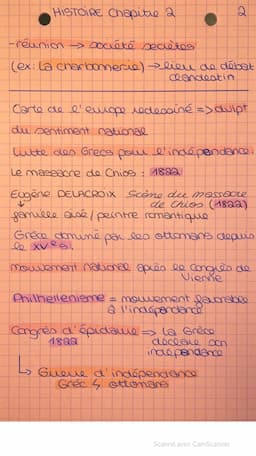 HISTOIRE Chapitre 2 2
-réunion → société secrètes
(ex: La charbonnerie) → lieu de débat
clandestin
Carte de l'europe redessiné => dvlpt
du sentiment national
Lutte des Grecs pour l'indépendance:
Le massacre de Chios: 1822
Eugène DELACROIX Scène du massacre
de Chios (1822)
famille aisé/peintre romantique
Grèce dominé par les ottomans depuis
le XVe s.
mouvement national après le congrès de
Vienne
Philhellénisme = mouvement favorable
à l'indépendance
Congrès d'épidaure → La Grèce
1822 déclare son
indépendance
↳ Guerre d'indépendance
Grèc ↯ ottomans
Scanné avec CamScanner